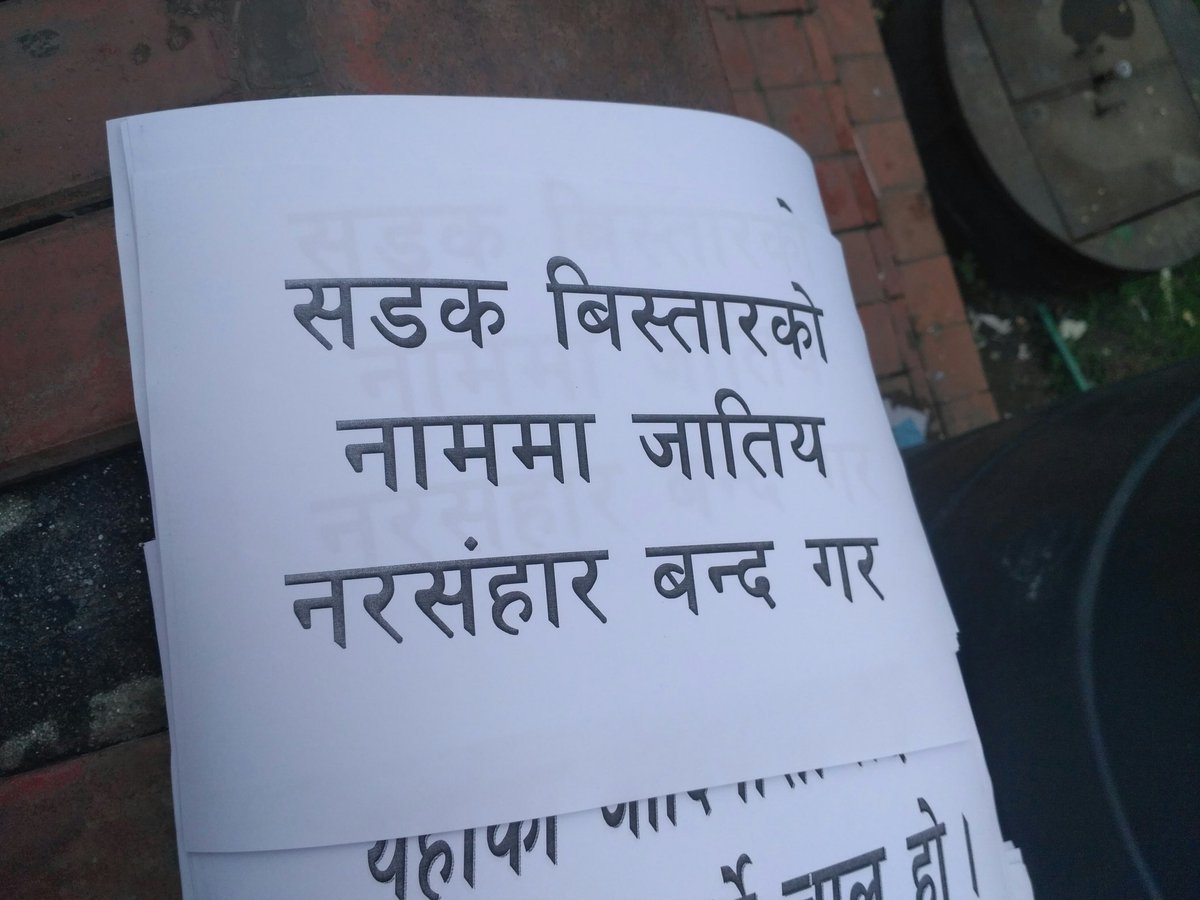 सडक बिस्तारको
नाममा जातिय
नरसंहार बन्द गर
यहाँका
हो।